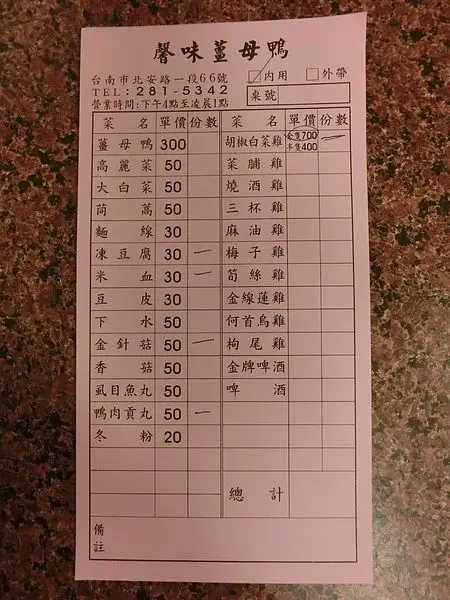 馨味薑母鴨
台南市北安路一段66號
TEL:281-5342
營業時間:下午4點至凌晨1點
內用 外帶
桌號
菜名 單價 份數 菜名 單價 份數
薑母鴨 300 胡椒白菜雞 全隻700 半隻400 一
高麗菜 50 菜脯雞
大白菜 50 燒酒雞
茼蒿 50 三杯雞
麵線 30 麻油雞
凍豆腐 30 一 梅子雞
米血 30 一 筍絲雞
豆皮 30 金線蓮雞
下水 50 何首烏雞
金針菇 50 一 枸尾雞
香菇 50 金牌啤酒
虱目魚丸 50 啤酒
鴨肉貢丸 50 一
冬粉 20
總計
備註